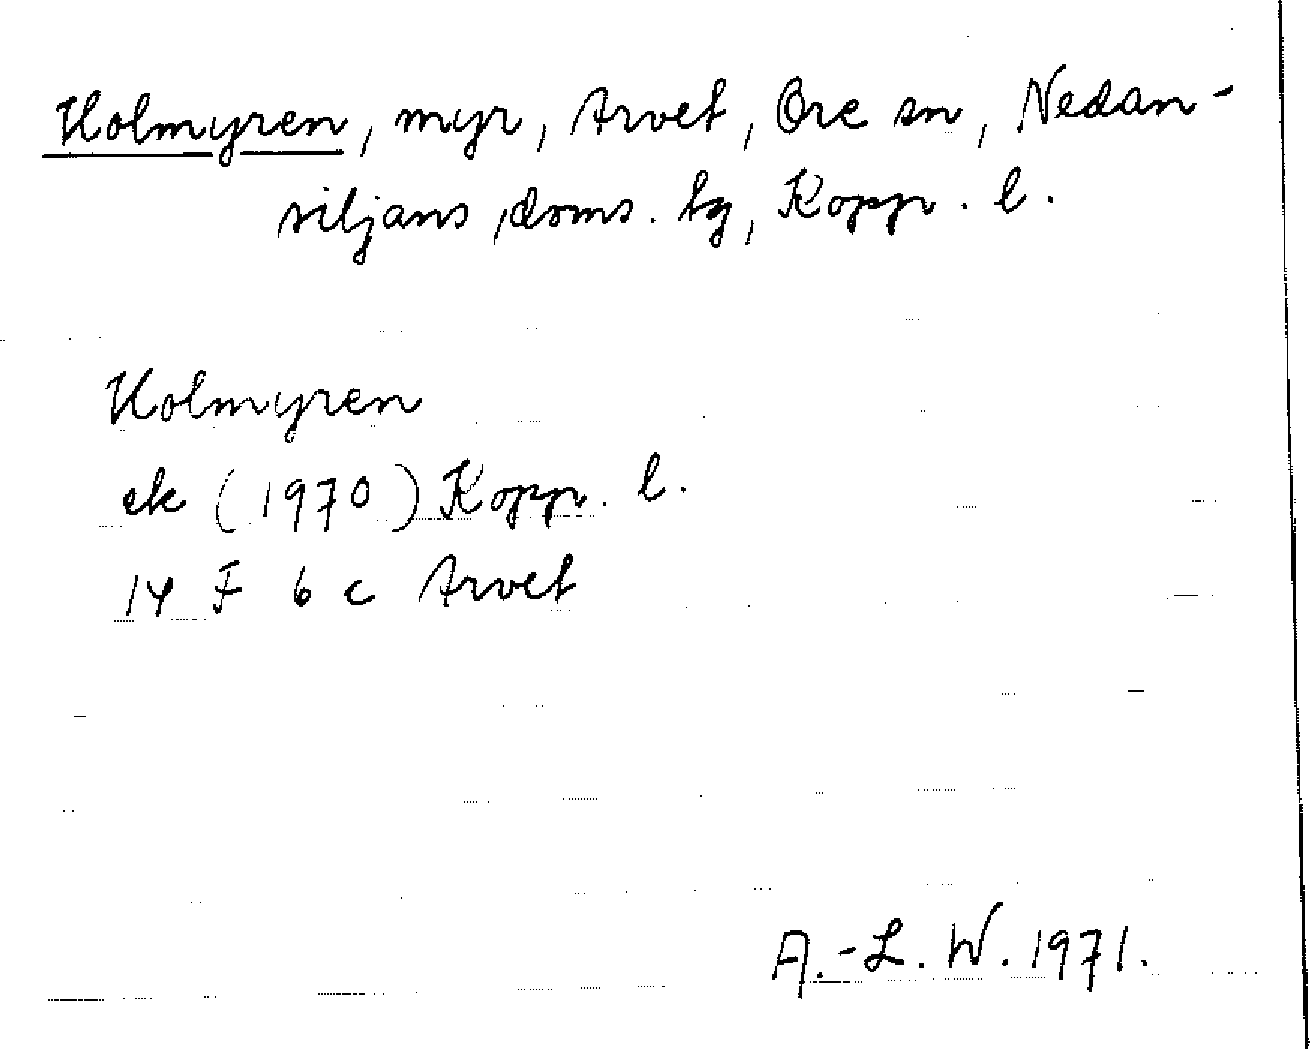 Holmyren, myr, Arvet, Ore sn, Nedan-
siljans doms. tg, Kopp. l.
Holmyren
ek (1970) Kopp. l.
14 F 6 c Arvet
A.-L. W. 1971.